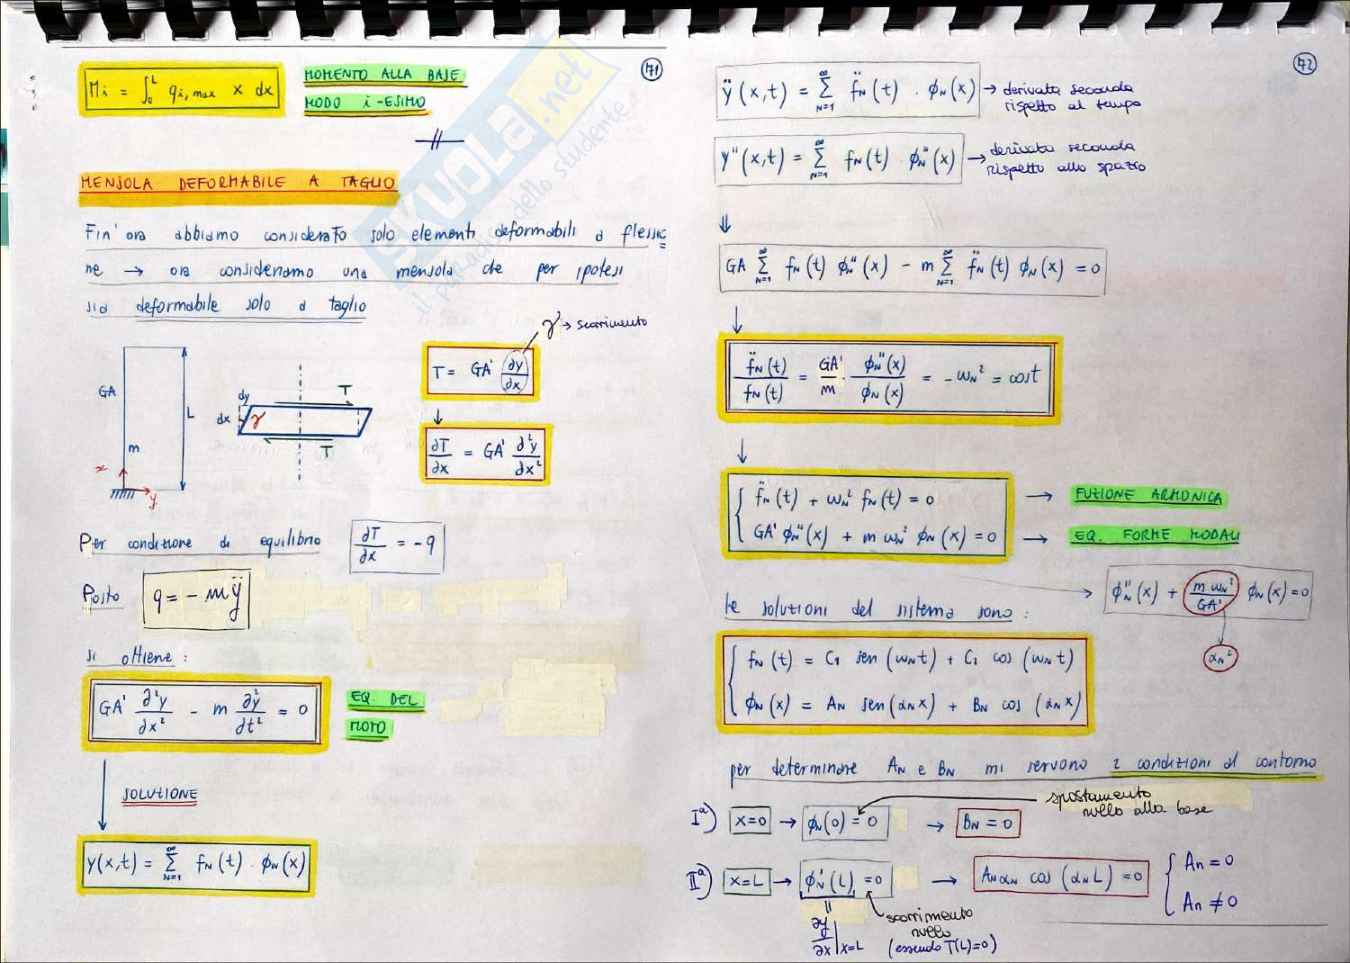 71
Mi = ∫₀ᴸ qi,max x dx
MOMENTO ALLA BASE
MODO i-ESIMO
SKUOLA.net
il paradiso dello studente
MENSOLA DEFORMABILE A TAGLIO
Fin'ora abbiamo considerato solo elementi deformabili a flessio
ne → ora consideriamo una mensola che per ipotesi
sia deformabile solo a taglio
γ → scorrimento
GA
L
m
x
y
dy
dx
γ
T
T
T = GA' ∂y/∂x
↓
∂T/∂x = GA' ∂²y/∂x²
Per condizione di equilibrio ∂T/∂x = -q
Posto q = - m ÿ
si ottiene:
GA' ∂²y/∂x² - m ∂²y/∂t² = 0
EQ. DEL
MOTO
SOLUTIONE
y(x,t) = Σ N=1 ∞ fN(t) · ϕN(x)
72
ÿ(x,t) = Σ N=1 ∞ f̈N(t) · ϕN(x) → derivata seconda
rispetto al tempo
y''(x,t) = Σ N=1 ∞ fN(t) · ϕN''(x) → derivata seconda
rispetto allo spazio
⇓
GA Σ N=1 ∞ fN(t) ϕN''(x) - m Σ N=1 ∞ f̈N(t) ϕN(x) = 0
↓
f̈N(t)/fN(t) = GA'/m · ϕN''(x)/ϕN(x) = - ωN² = cost
↓
f̈N(t) + ωN² fN(t) = 0 → FUZIONE ARMONICA
GA' ϕN''(x) + m ωN² ϕN(x) = 0 → EQ. FORME MODALI
→ ϕN''(x) + m ωN²/GA' ϕN(x) = 0
αN²
Le soluzioni del sistema sono:
fN(t) = C1 sen (ωN t) + C2 cos (ωN t)
ϕN(x) = AN sen (αN x) + BN cos (αN x)
per determinare AN e BN mi servono 2 condizioni al contorno
spostamento
nullo alla base
Iª) x=0 → ϕN(0) = 0 → BN = 0
IIª) x=L → ϕN'(L) = 0 → AN αN cos (αN L) = 0 { An = 0
An ≠ 0
∂y/∂x |x=L
scorrimento
nullo
(essendo T(L)=0)